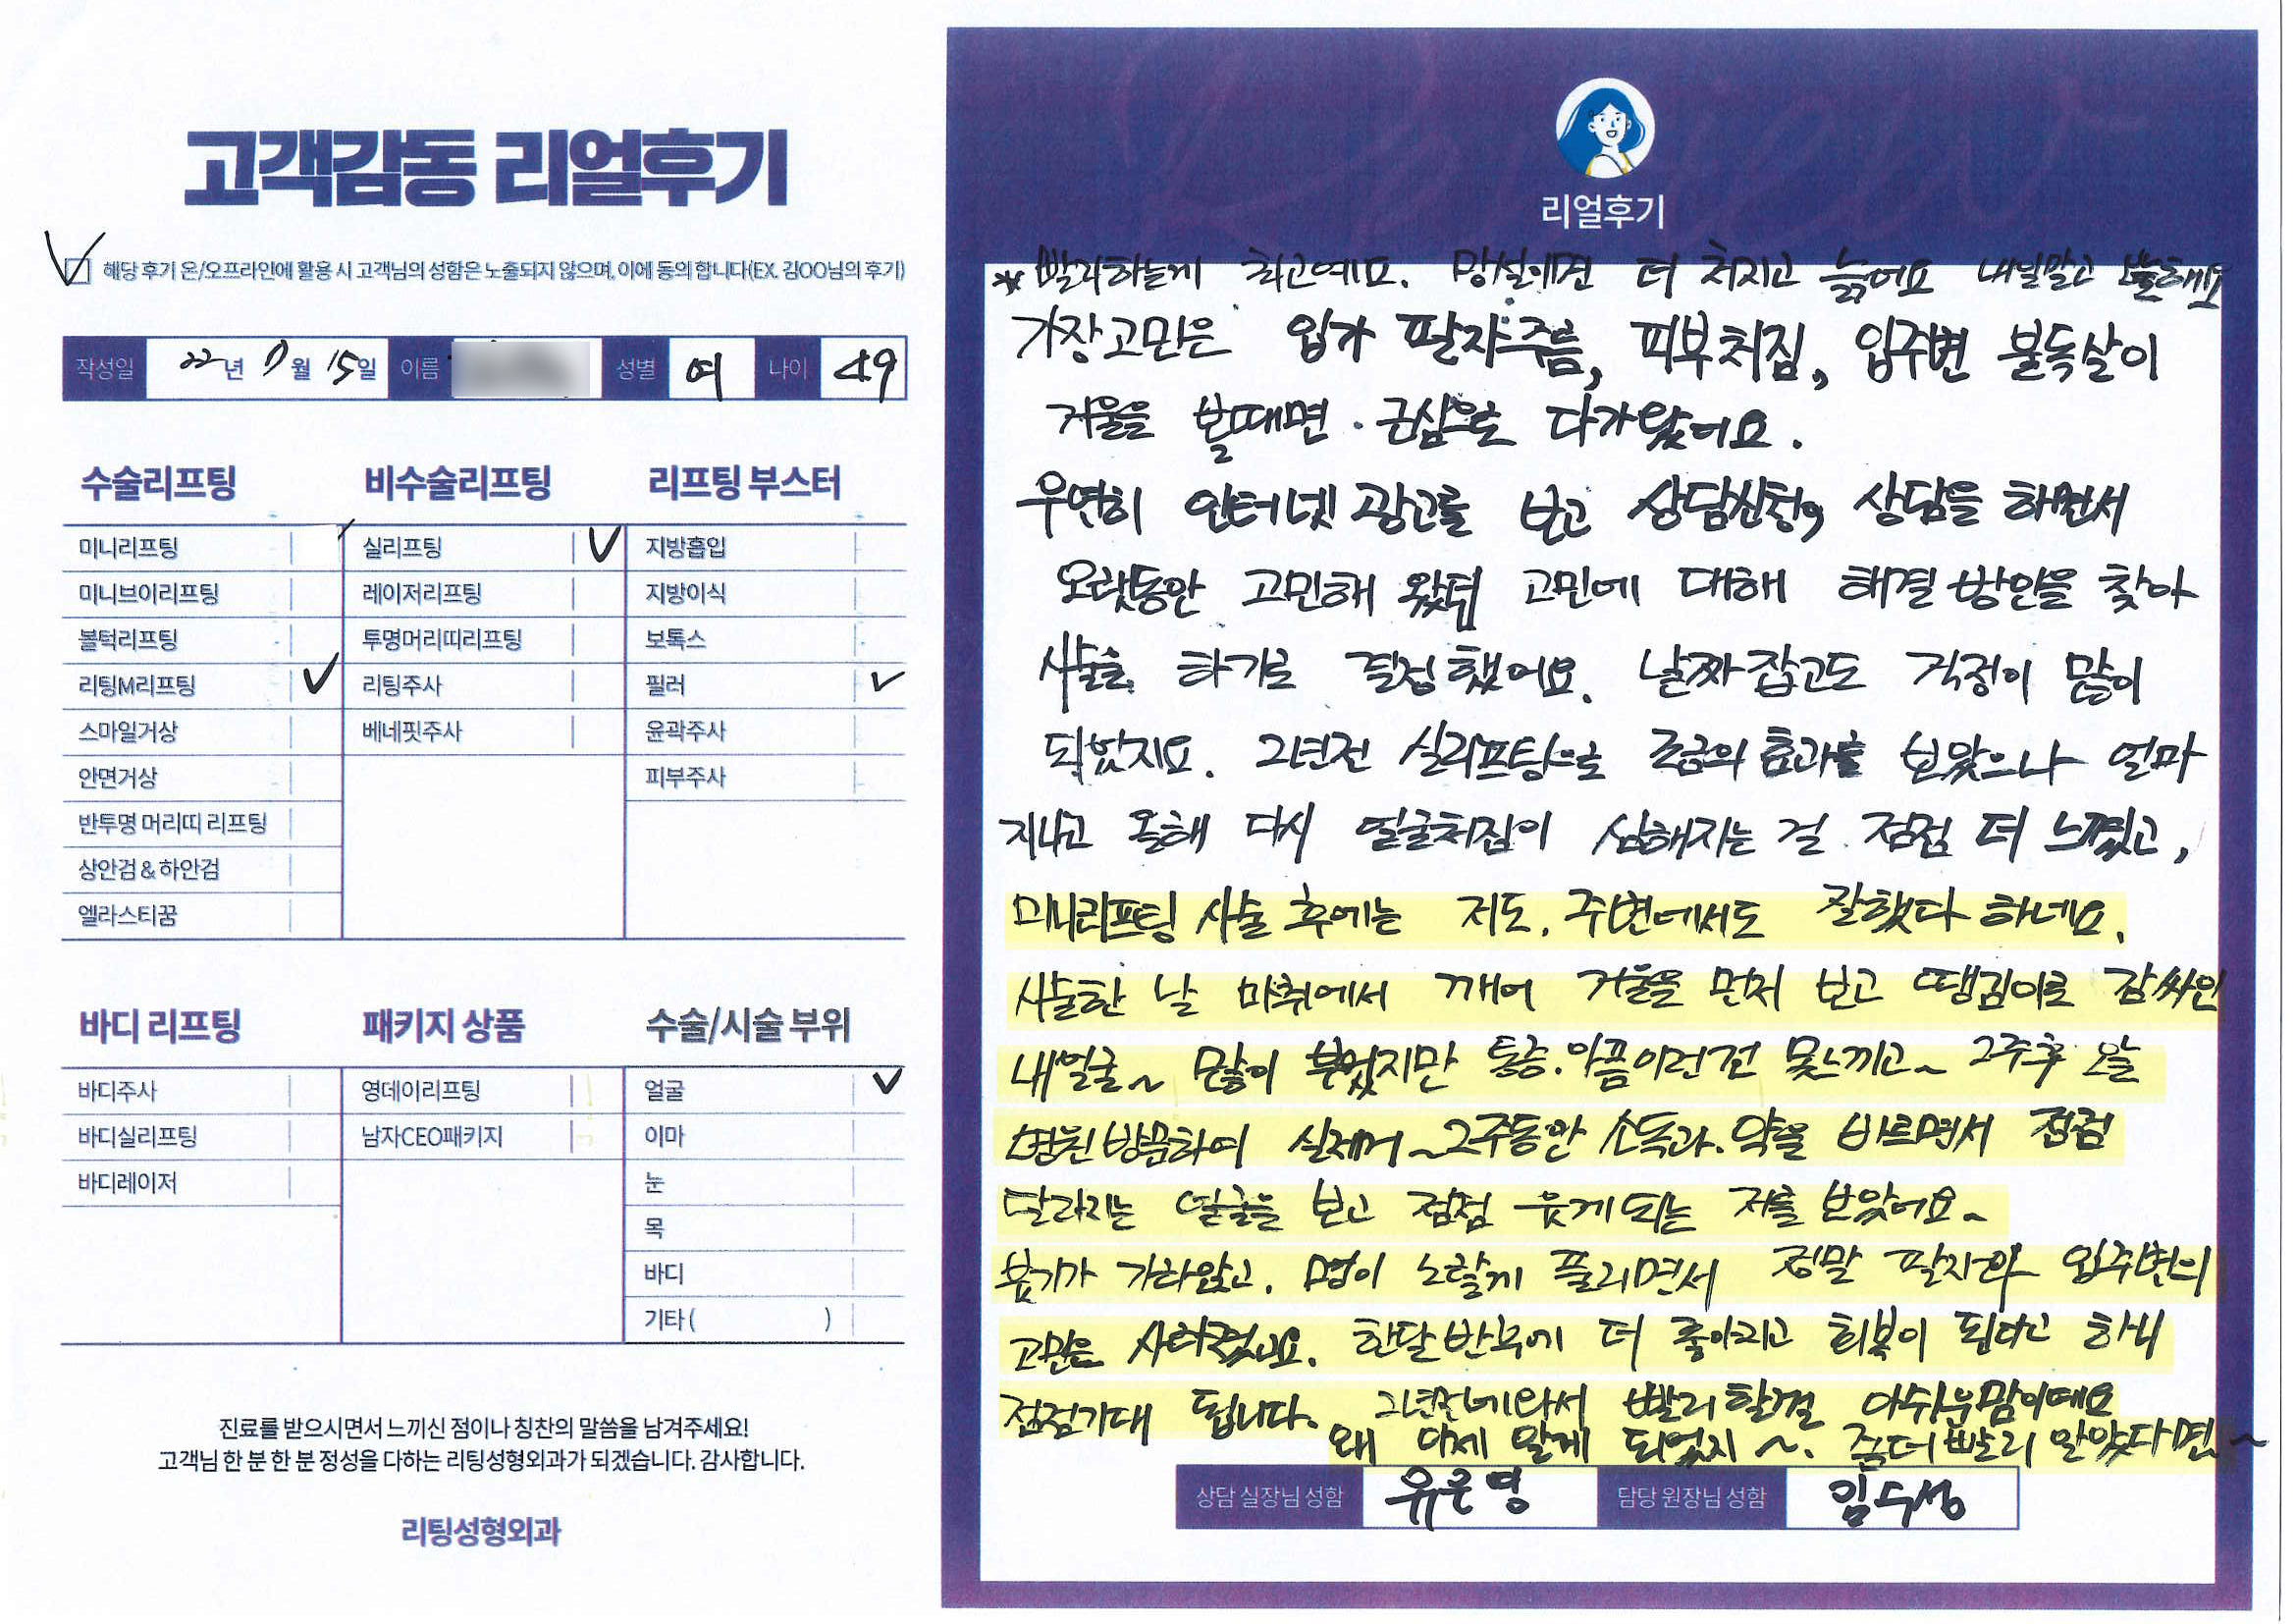 고객감동 리얼후기
해당 후기 온/오프라인에 활용 시 고객님의 성함은 노출되지 않으며, 이에 동의 합니다(EX. 김OO님의 후기)
작성일 22년 7월 15일 이름 성별 여 나이 49
수술리프팅
미니리프팅
미니브이리프팅
볼턱리프팅
리팅M리프팅
스마일거상
안면거상
반투명 머리띠 리프팅
상안검 & 하안검
엘라스티꿈
비수술리프팅
실리프팅
레이저리프팅
투명머리띠리프팅
리팅주사
베네핏주사
리프팅 부스터
지방흡입
지방이식
보톡스
필러
윤곽주사
피부주사
바디 리프팅
바디주사
바디실리프팅
바디레이저
패키지 상품
영데이리프팅
남자CEO패키지
수술/시술 부위
얼굴
이마
눈
목
바디
기타 ( )
진료를 받으시면서 느끼신 점이나 칭찬의 말씀을 남겨주세요!
고객님 한 분 한 분 정성을 다하는 리팅성형외과가 되겠습니다. 감사합니다.
리팅성형외과
리얼후기
* 빨리하는게 최고예요. 망설이면 더 처지고 늙어요 내일말고
가장고민은 입가 팔자주름, 피부처짐, 입주변 불독살이
거울을 볼때면 · 근심으로 다가왔어요.
우연히 인터넷 광고를 보고 상담신청, 상담을 하면서
오랫동안 고민해 왔던 고민에 대해 해결 방안을 찾아
시술을 하기로 결정했어요. 날짜 잡고도 걱정이 많이
되었지요. 2년전 실리프팅으로 조금의 효과를 보았으나 얼마
지나고 올해 다시 얼굴처짐이 심해지는 걸 점점 더 느꼈고,
미니리프팅 시술 후에는 저도. 주변에서도 잘했다 하네요.
시술한 날 마취에서 깨어 거울을 먼저 보고 땡김이로 감싸인
내얼굴~ 많이 부었지만 통증.아픔이런건 못느끼고~ 2주후 오늘
병원방문하여 실제거~2주동안 소독과.약을 바르면서 점점
달라지는 얼굴을 보고 점점 웃게되는 저를 보았어요~
붓기가 가라앉고. 멍이 노랗게 풀리면서 정말 팔자와 입주변의
고민은 사라졌네요. 한달반후에 더 좋아지고 회복이 된다고 하니
점점기대 됩니다. 2년전에와서 빨리할껄 아쉬운맘이네요
왜 이제 알게 되었지~. 좀더빨리 알았다면~
상담 실장님 성함 유은영 담당 원장님 성함 임수성